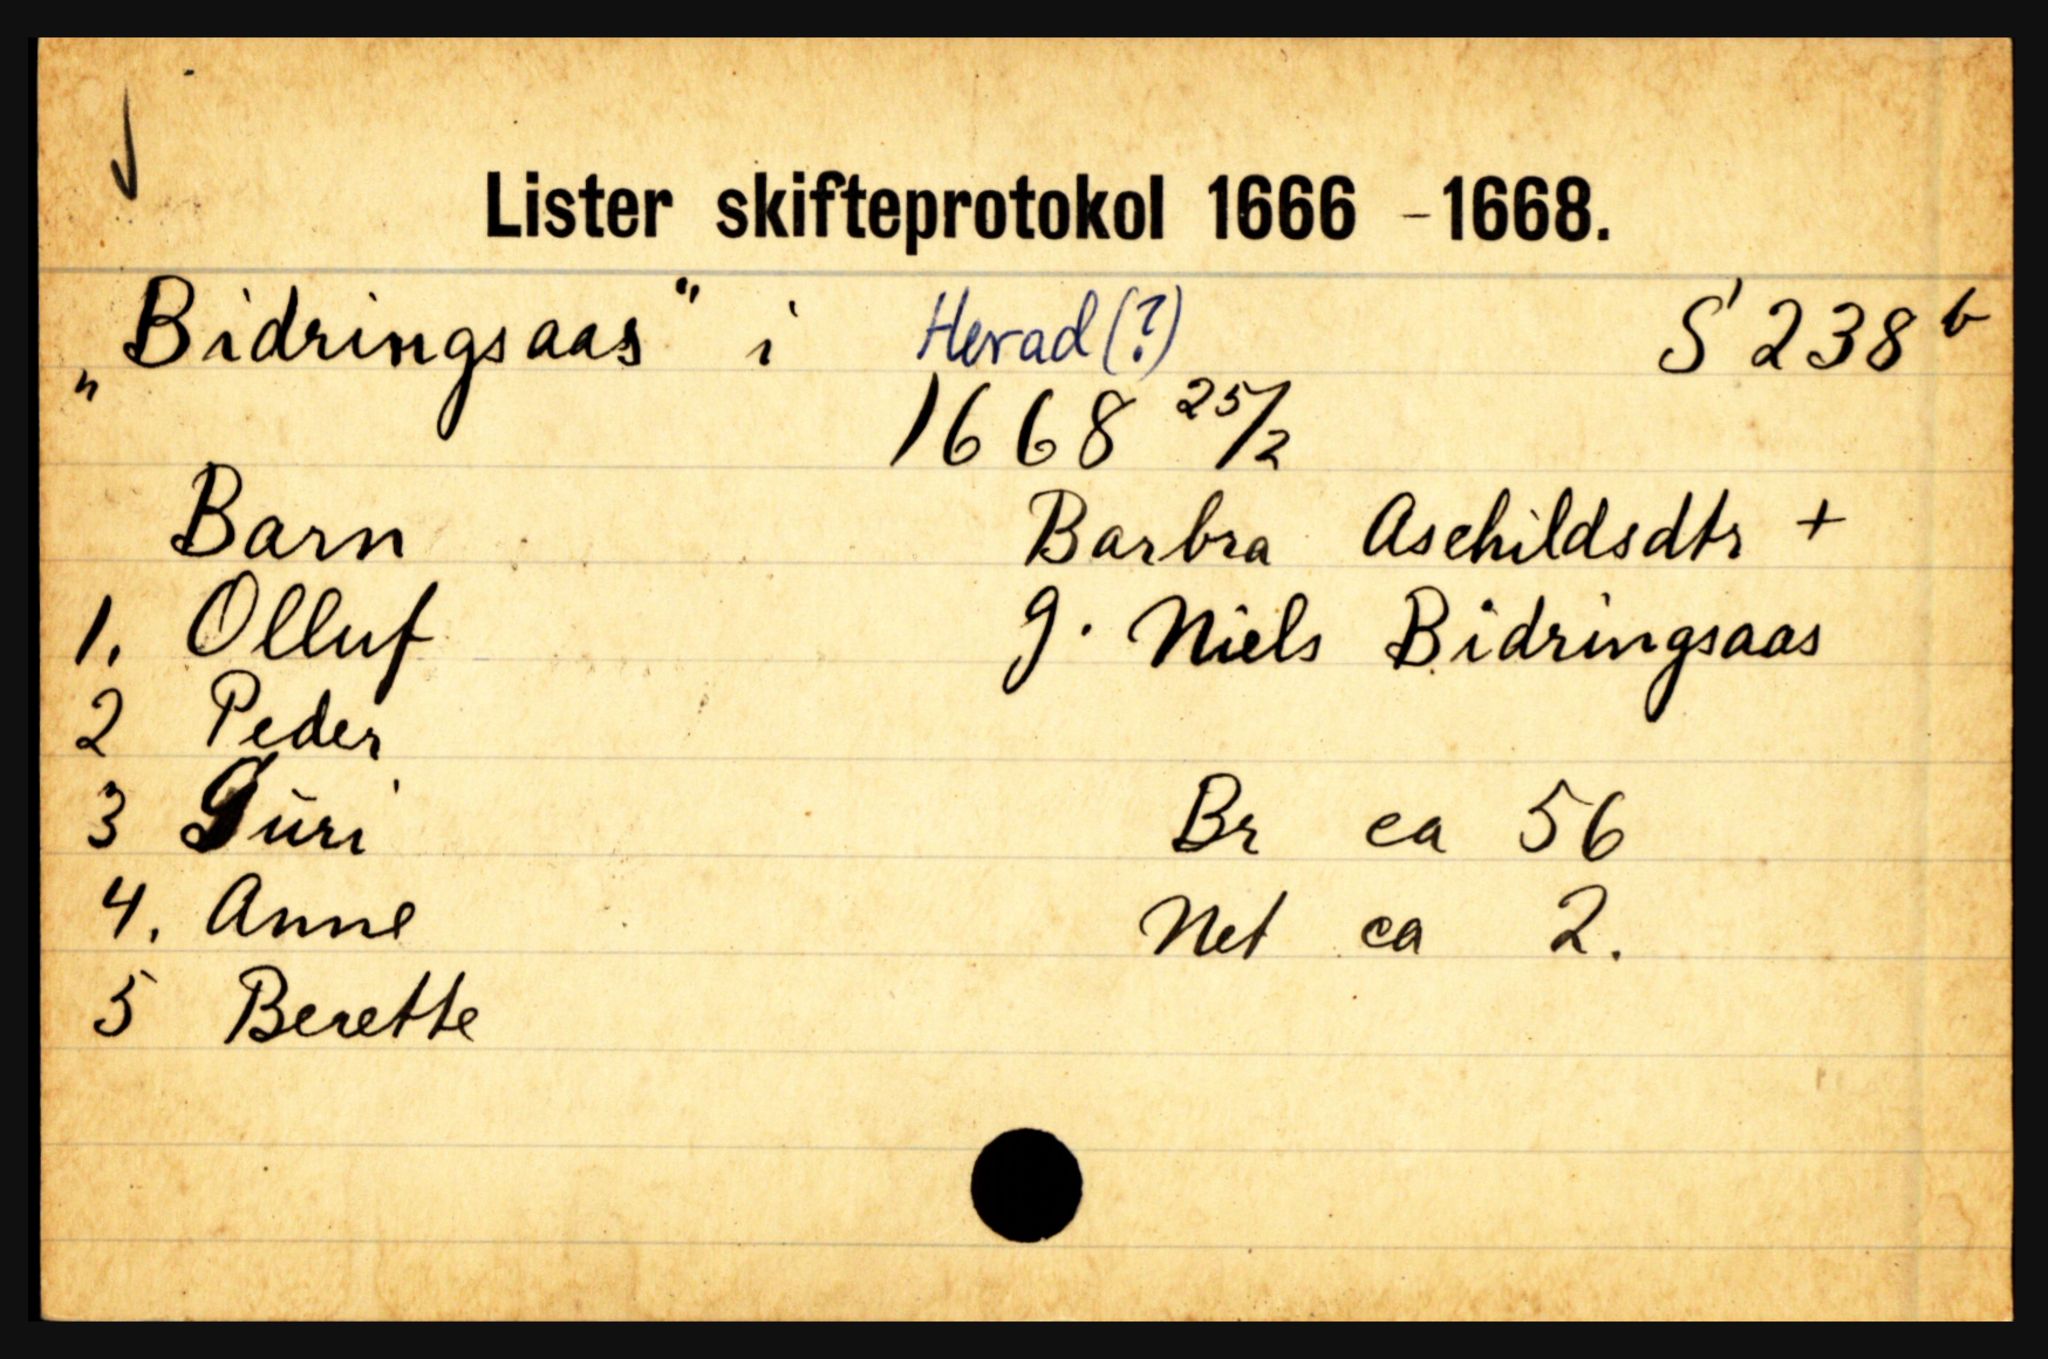 Lister skifteprotokol 1666 - 1668.
„Bidringsaas" i Herad (?) S 238 b
1668 25/2
Barn Barbra Asehildsdtr +
1. Olluf g. Niels Bidringsaas
2 Peder
3 Guri Br ca 56
4. Anne Net ca 2.
5 Berette